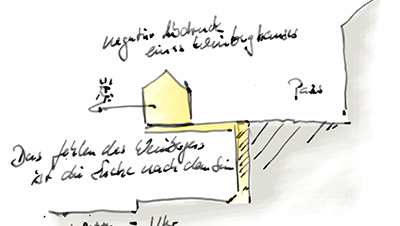 negativ Abdruck
eines Weinberghauses
Pass
Das fehlen des Weinbergs
ist die Suche nach dem Sinn